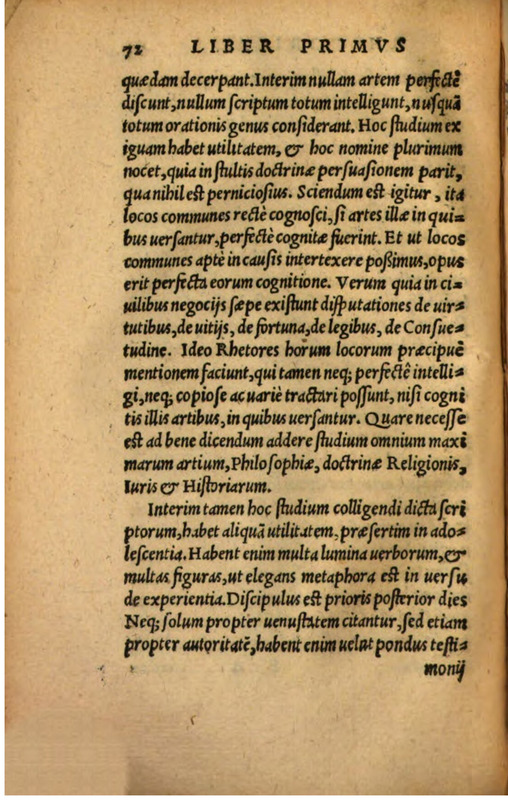 72 LIBER PRIMVS
quædam decerpant. Interim nullam artem perfectè
discunt, nullum scriptum totum intelligunt, nusquã
totum orationis genus considerant. Hoc studium ex
iguam habet utilitatem, & hoc nomine plurimum
nocet, quia in stultis doctrinæ persuasionem parit,
qua nihil est perniciosius. Sciendum est igitur, ita
locos communes rectè cognosci, si artes illæ in qui=
bus uersantur, perfectè cognitæ fuerint. Et ut locos
communes aptè in causis intertexere poßimus, opus
erit perfecta eorum cognitione. Verum quia in ci=
uilibus negocijs sæpe existunt disputationes de uir=
tutibus, de uitijs, de fortuna, de legibus, de Consue=
tudine. Ideo Rhetores horum locorum præcipuè
mentionem faciunt, qui tamen neq; perfectè intelli=
gi, neq; copiose ac uariè tractari possunt, nisi cogni
tis illis artibus, in quibus uersantur. Quare necesse
est ad bene dicendum addere studium omnium maxi
marum artium, Philosophiæ, doctrinæ Religionis,
Iuris & Historiarum.
Interim tamen hoc studium colligendi dicta scri
ptorum, habet aliquã utilitatem, præsertim in ado=
lescentia. Habent enim multa lumina uerborum, &
multas figuras, ut elegans metaphora est in uersu
de experientia. Discipulus est prioris posterior dies
Neq; solum propter uenustatem citantur, sed etiam
propter autoritatẽ, habent enim uelut pondus testi=
monij